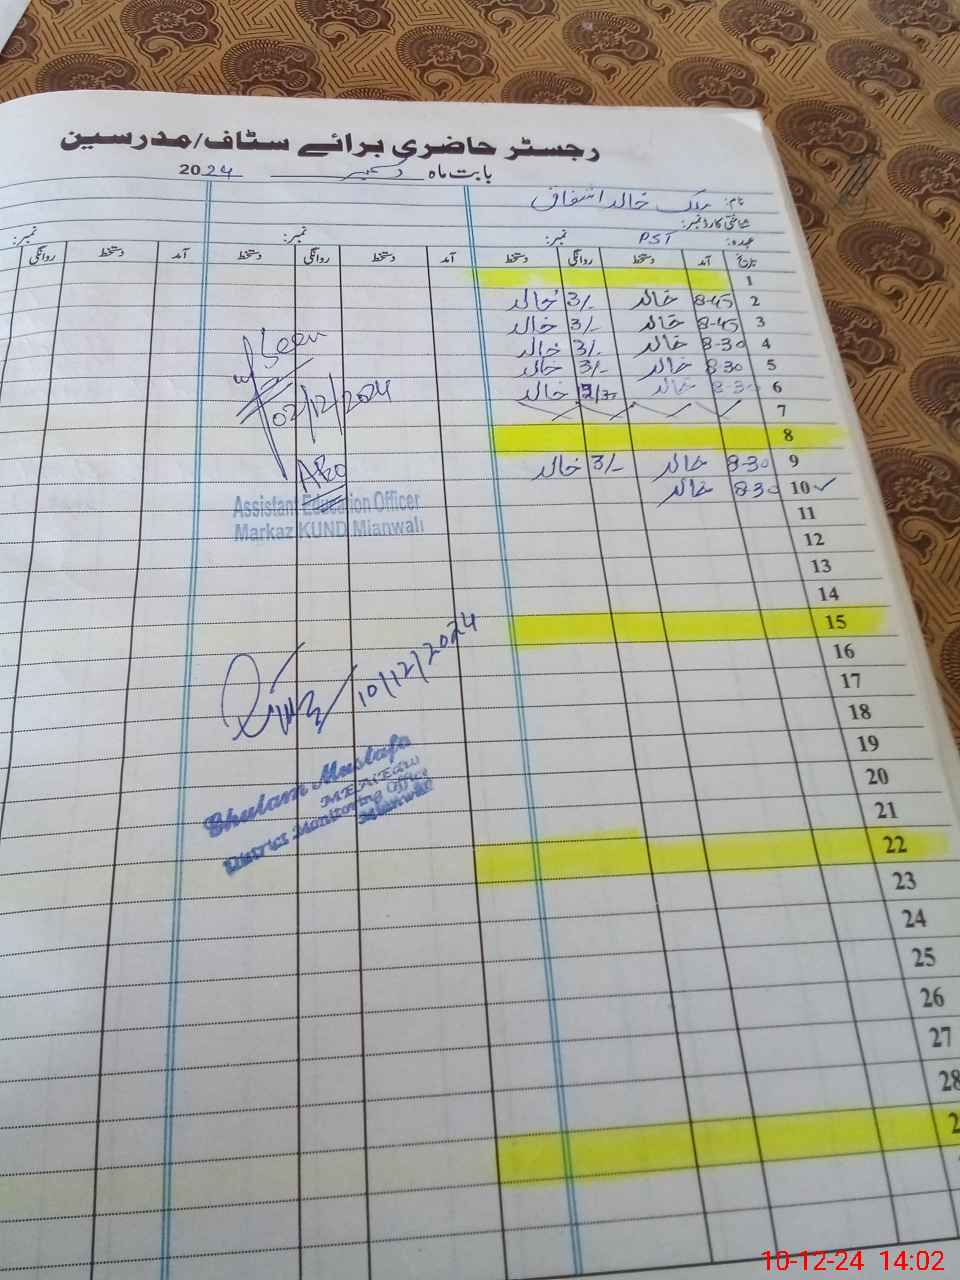 رجسٹر حاضری برائے سٹاف/مدرسین
بابت ماہ دسمبر 2024
نام: ملک خالد اشفاق
شناختی کارڈ نمبر:
عہدہ: PST نمبر: نمبر: نمبر:
تاریخ آمد دستخط روانگی دستخط آمد دستخط روانگی دستخط آمد دستخط روانگی
1
2 8-45 خالد 3/- خالد
3 8-45 خالد 3/- خالد
4 8-30 خالد 3/- خالد
5 8-30 خالد 3/- خالد
6 8-30 خالد 12/30 خالد
7
8
9 8-30 خالد 3/- خالد
10 8-30 خالد
11
12
13
14
15
16
17
18
19
20
21
22
23
24
25
26
27
28
2
Seen
02/12/2024
AEO
Assistant Education Officer
Markaz KUND Mianwali
10/12/2024
Ghulam Mustafa
MEA/Edu
District Monitoring Office
Mianwali
10-12-24 14:02